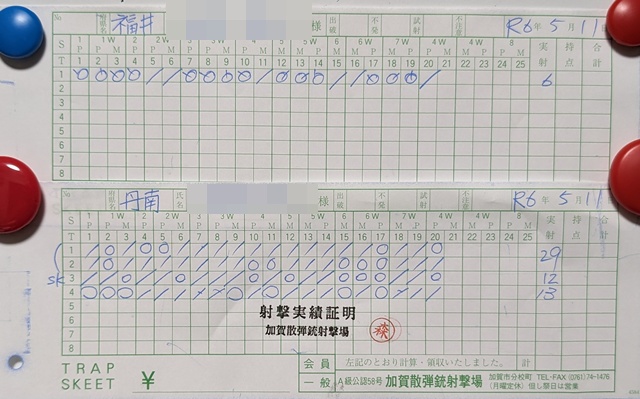 № 府県名 福井 様 出破 不発 試射 不注意 R6年5月11日
S 1 1W 2 2W 3 4 5 6 6W 7 7W 8 実射 持点 合計
T 1 2 3 4 5 6 7 8 9 10 11 12 13 14 15 16 17 18 19 20 21 22 23 24 25
1 ○ ○ ○ ○ / / ○ ○ ○ ○ / ○ ○ ○ / / ○ ○ ○ / 6
2
3
4
5
6
7
8
№ 府県名 丹南 氏名 様 出破 不発 試射 不注意 R6年5月11日
S 1 1W 2 2W 3 4 5 6 6W 7 7W 8 実射 持点 合計
T 1 2 3 4 5 6 7 8 9 10 11 12 13 14 15 16 17 18 19 20 21 22 23 24 25
1
2 29
SK 3 12
4 13
5
6
7
8
射撃実績証明
加賀散弾銃射撃場
森
TRAP
SKEET ¥
会員 左記のとおり計算・領収いたしました。 計
一般 A級公認58号 加賀散弾銃射撃場 加賀市分校町 TEL・FAX (0761)74-1476
(月曜定休) 但し祭日は営業